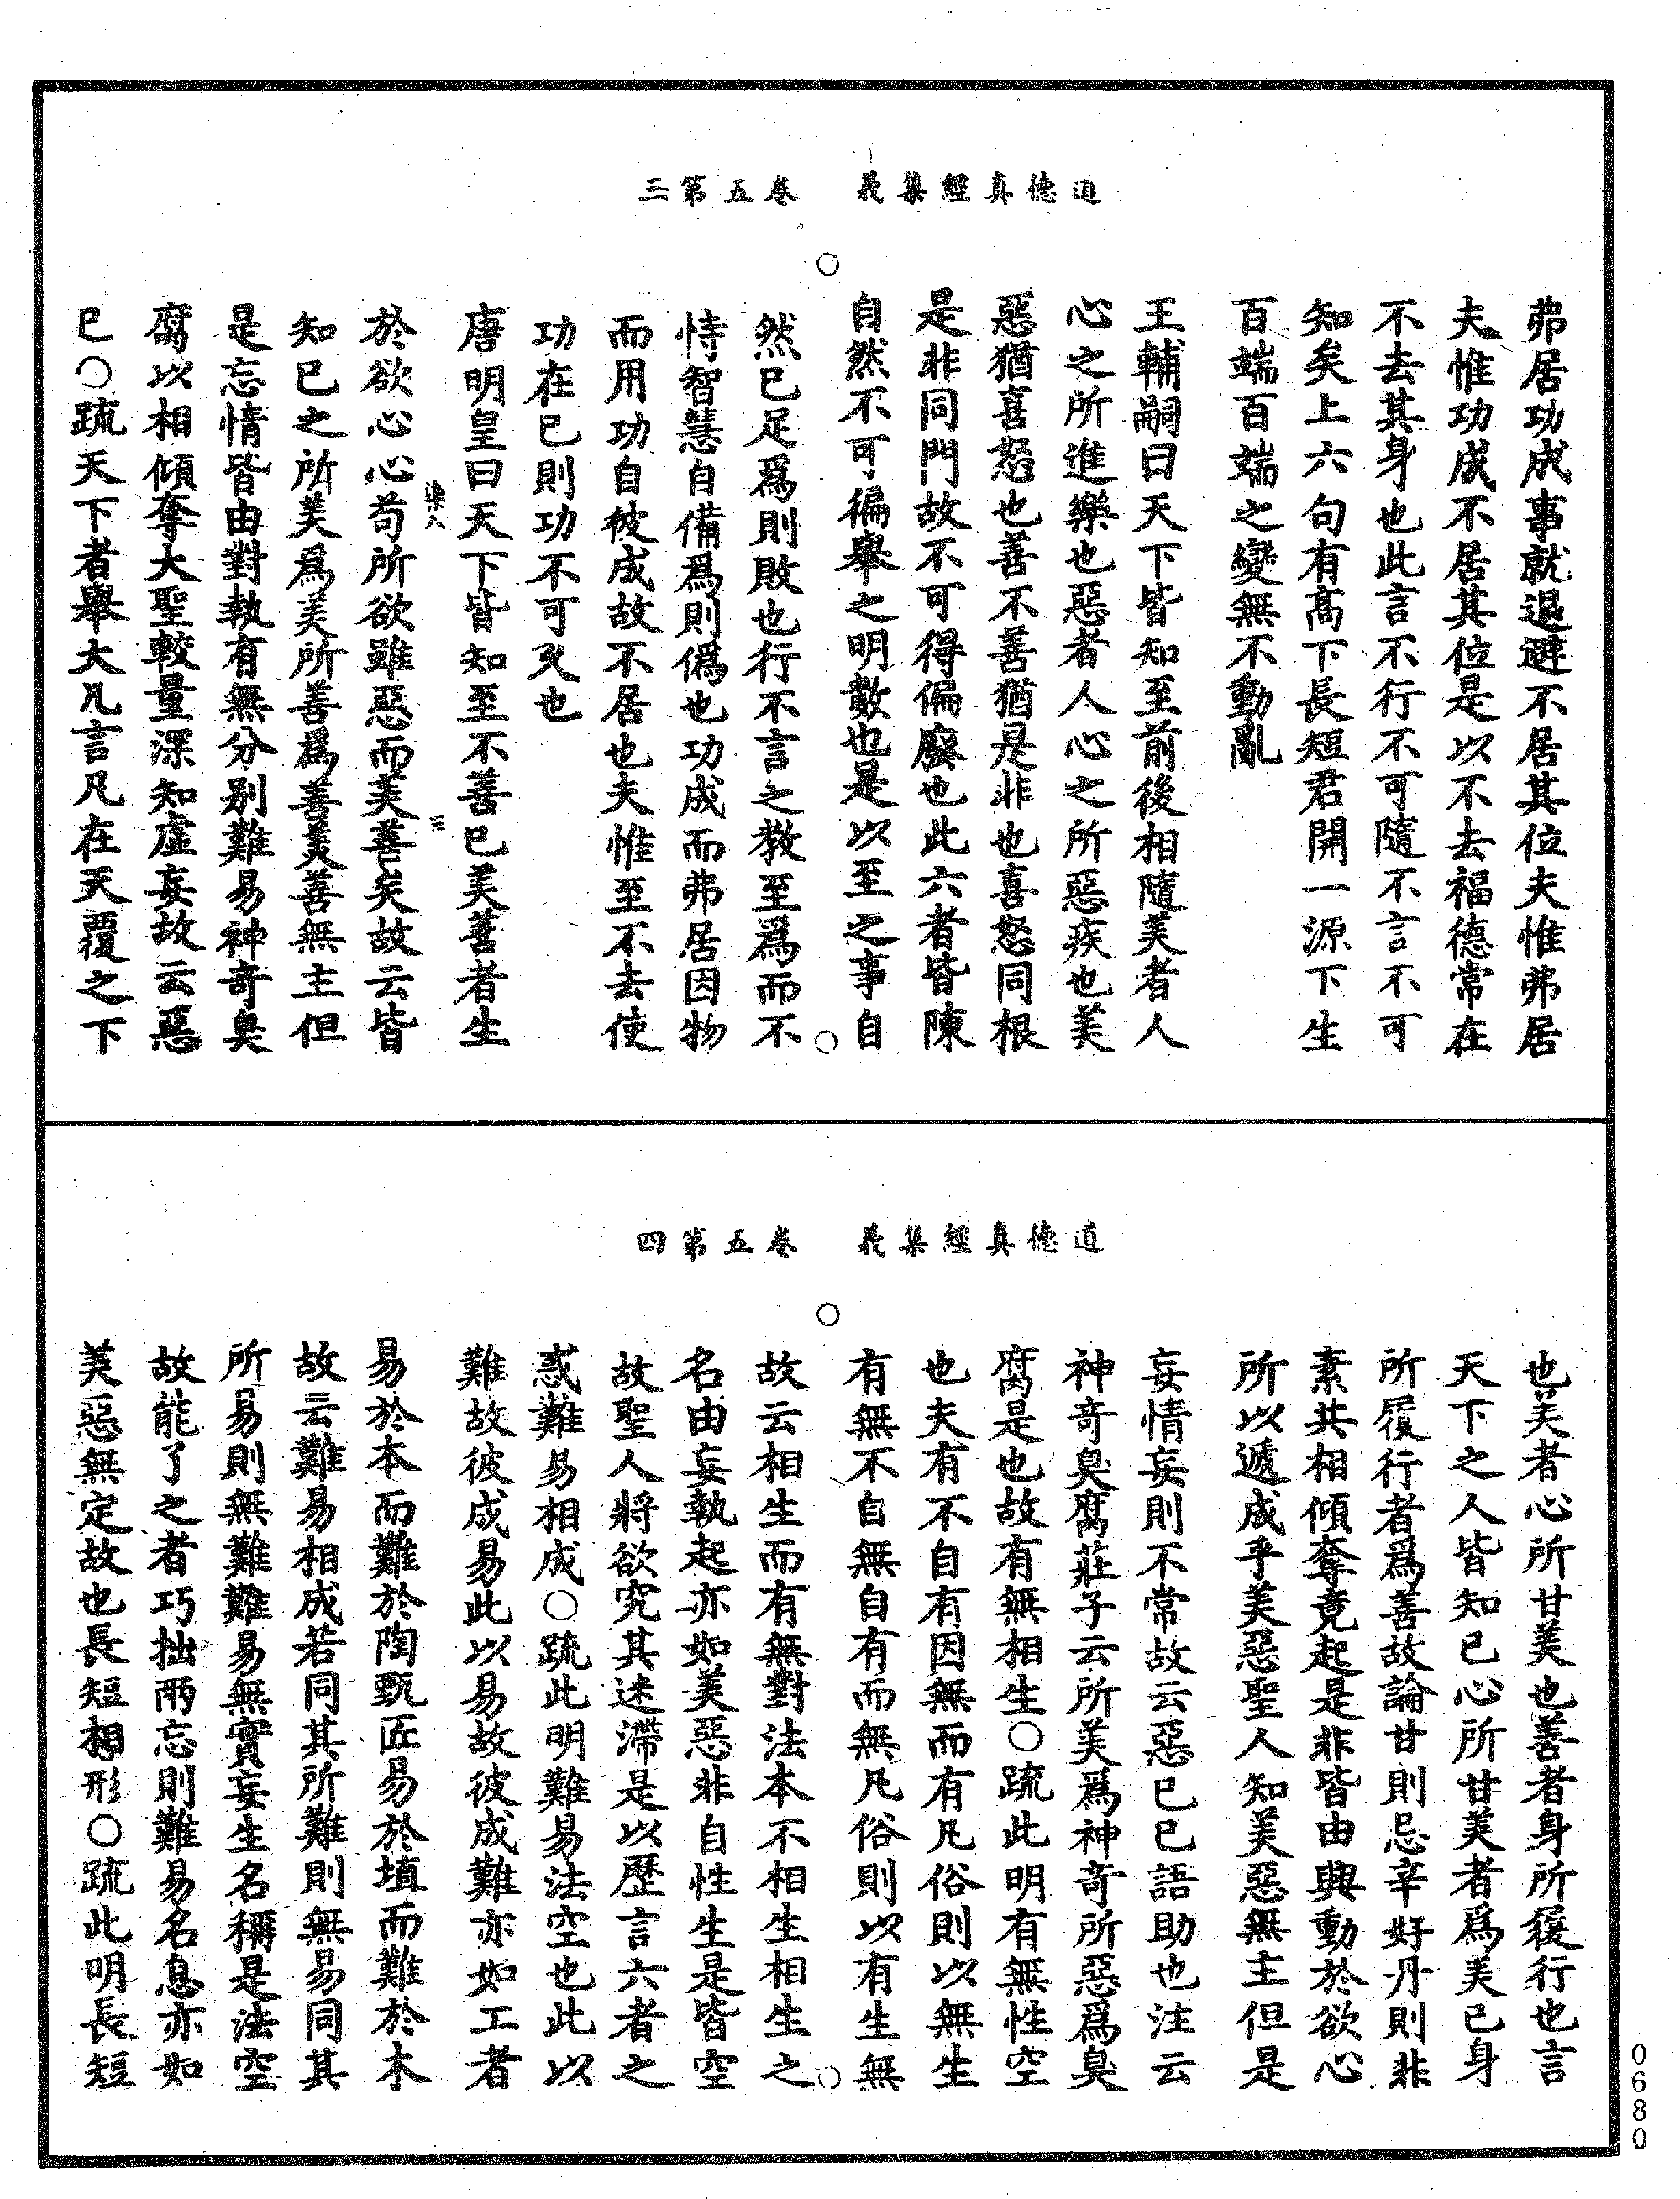 道德真經集義　卷五第三
弗居功成事就退避不居其位夫惟弗居
夫惟功成不居其位是以不去福德常在
不去其身也此言不行不可隨不言不可
知矣上六句有高下長短君開一源下生
百端百端之變無不動亂
王輔嗣曰天下皆知至前後相隨美者人
心之所進樂也惡者人心之所惡疾也美
惡猶喜怒也善不善猶是非也喜怒同根
是非同門故不可得偏廢也此六者皆陳
自然不可徧舉之明數也是以至之事自
然已足爲則敗也行不言之教至爲而不
恃智慧自備爲則僞也功成而弗居因物
而用功自彼成故不居也夫惟至不去使
功在已則功不可久也
唐明皇曰天下皆知至不善已美善者生
染八　三
於欲心心苟所欲雖惡而美善矣故云皆
知已之所美爲美所善爲善美善無主但
是忘情皆由對執有無分別難易神奇臭
腐以相傾奪大聖較量深知虛妄故云惡
已○疏天下者舉大凡言凡在天覆之下
道德真經集義　卷五第四
也美者心所甘美也善者身所履行也言
天下之人皆知已心所甘美者爲美已身
所履行者爲善故論甘則忌辛好丹則非
素共相傾奪竟起是非皆由興動於欲心
所以遞成乎美惡聖人知美惡無主但是
妄情妄則不常故云惡已已語助也注云
神奇臭腐莊子云所美爲神奇所惡爲臭
腐是也故有無相生○疏此明有無性空
也夫有不自有因無而有凡俗則以無生
有無不自無自有而無凡俗則以有生無
故云相生而有無對法本不相生相生之
名由妄執起亦如美惡非自性生是皆空
故聖人將欲究其迷滯是以歷言六者之
惑難易相成○疏此明難易法空也此以
難故彼成易此以易故彼成難亦如工者
易於本而難於陶甄匠易於埴而難於木
故云難易相成若同其所難則無易同其
所易則無難難易無實妄生名稱是法空
故能了之者巧拙兩忘則難易名息亦如
美惡無定故也長短相形○疏此明長短
0680